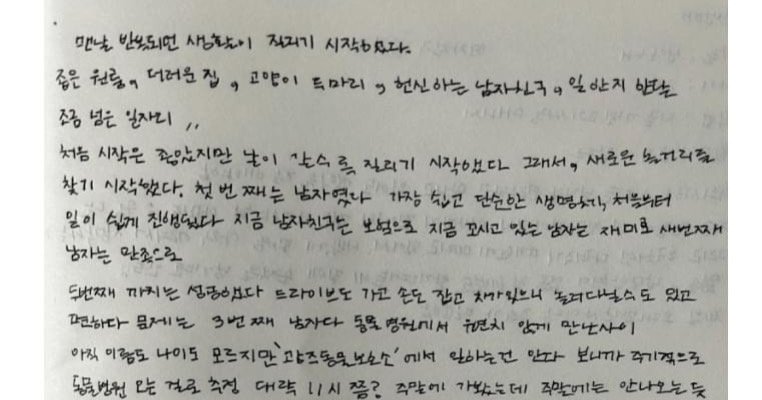 맨날 반복되던 생활이 질리기 시작했다.
좁은 원룸, 더러운 집, 고양이 두마리, 헌신하는 남자친구, 일 한지 한달
조금 넘은 일자리 ,,
처음 시작은 좋았지만 날이 갈수록 질리기 시작했다 그래서, 새로운 놀거리를
찾기 시작했다. 첫 번째는 남자였다 가장 쉽고 단순한 생명체, 처음부터
일이 쉽게 진행됬다 지금 남자친구는 보험으로 지금 꼬시고 있는 남자는 재미로 세번째
남자는 만족으로
두번째 까지는 성공했다 드라이브도 가고 손도 잡고 차가있으니 놀러다닐수도 있고
편하다 문제는 3번째 남자다 동물병원에서 우연치 않게 만난사이
아직 이름도 나이도 모르지만 '광주동물보호소' 에서 일하는건 안다 보니까 주기적으로
동물병원 오는 걸로 추정 대략 11시 쯤? 주말에 가봤는데 주말에는 안나오는듯